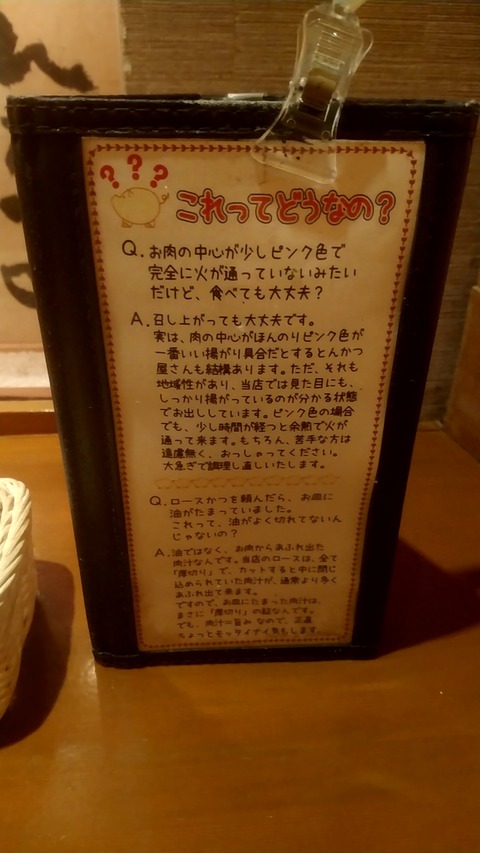 ???
これってどうなの?
Q.お肉の中心が少しピンク色で
完全に火が通っていないみたい
だけど、食べても大丈夫?
A.召し上がっても大丈夫です。
実は、肉の中心がほんのりピンク色が
一番いい揚がり具合だとするとんかつ
屋さんも結構あります。ただ、それも
地域性があり、当店では見た目にも、
しっかり揚がっているのが分かる状態
でお出ししています。ピンク色の場合
でも、少し時間が経つと余熱で火が
通って来ます。もちろん、苦手な方は
遠慮無く、おっしゃってください。
大急ぎで調理し直しいたします。
Q.ロースかつを頼んだら、お皿に
油がたまっていました。
これって、油がよく切れてないん
じゃないの?
A.油ではなく、お肉からあふれ出た
肉汁なんです。当店のロースは、全て
「厚切り」で、カットすると中に閉じ
込められていた肉汁が、通常より多く
あふれ出て来ます。
ですので、お皿にたまった肉汁は、
まさに「厚切り」の証なんです。
でも、肉汁=旨みなので、正直
ちょっとモッタイナイ気もします